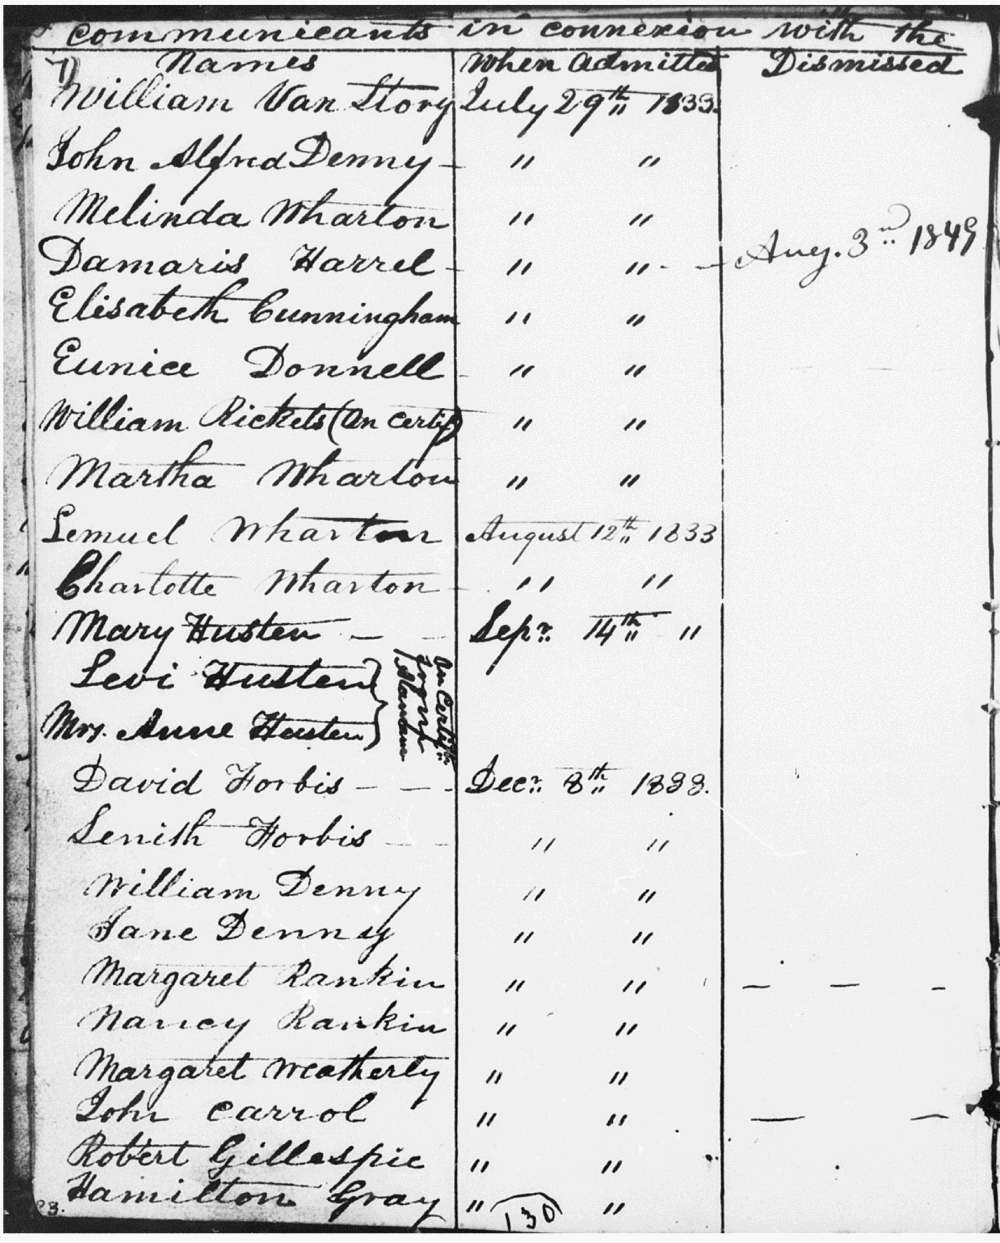 Communicants in connexion with the
7) Names When Admitted Dismissed
William Van Story July 29th 1833.
John Alfred Denny - " "
Melinda Wharton " "
Damaris Harrel - " " - - Aug. 3rd 1849
Elisabeth Cunningham " "
Eunice Donnell - " "
William Rickets (on Certif) " "
Martha Wharton " "
Lemuel Wharton August 12th 1833
Charlotte Wharton - " "
Mary Husten - - Sepr. 14th "
Levi Husten }
Mrs. Anne Husten }
On Certif.
from
Alamance
David Forbis - - - Decr. 8th 1833.
Lenith Forbis - - " "
William Denny " "
Jane Denny " "
Margaret Rankin " " - - -
Nancy Rankin " "
Margaret Weatherly " "
John Carrol " " - -
Robert Gillespie " "
Hamilton Gray " "
23. 130